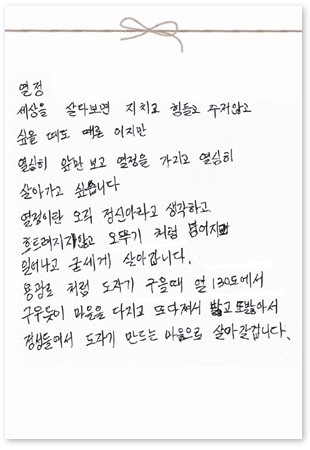 열정
세상을 살다보면 지치고 힘들고 주저앉고
싶을 때도 때론 이지만
열심히 앞만 보고 열정을 가지고 열심히
살아가고 싶습니다
열정이란 오직 정신이라고 생각하고
흐트러지지않고 오뚜기 처럼 넘어지면
일어나고 굳세게 살아갑니다.
용광로 처럼 도자기 구을때 열 130도에서
구우듯이 마음을 다지고 또다져서 밟고 또밟아서
정성들여서 도자기 만드는 마음으로 살아갈겁니다.